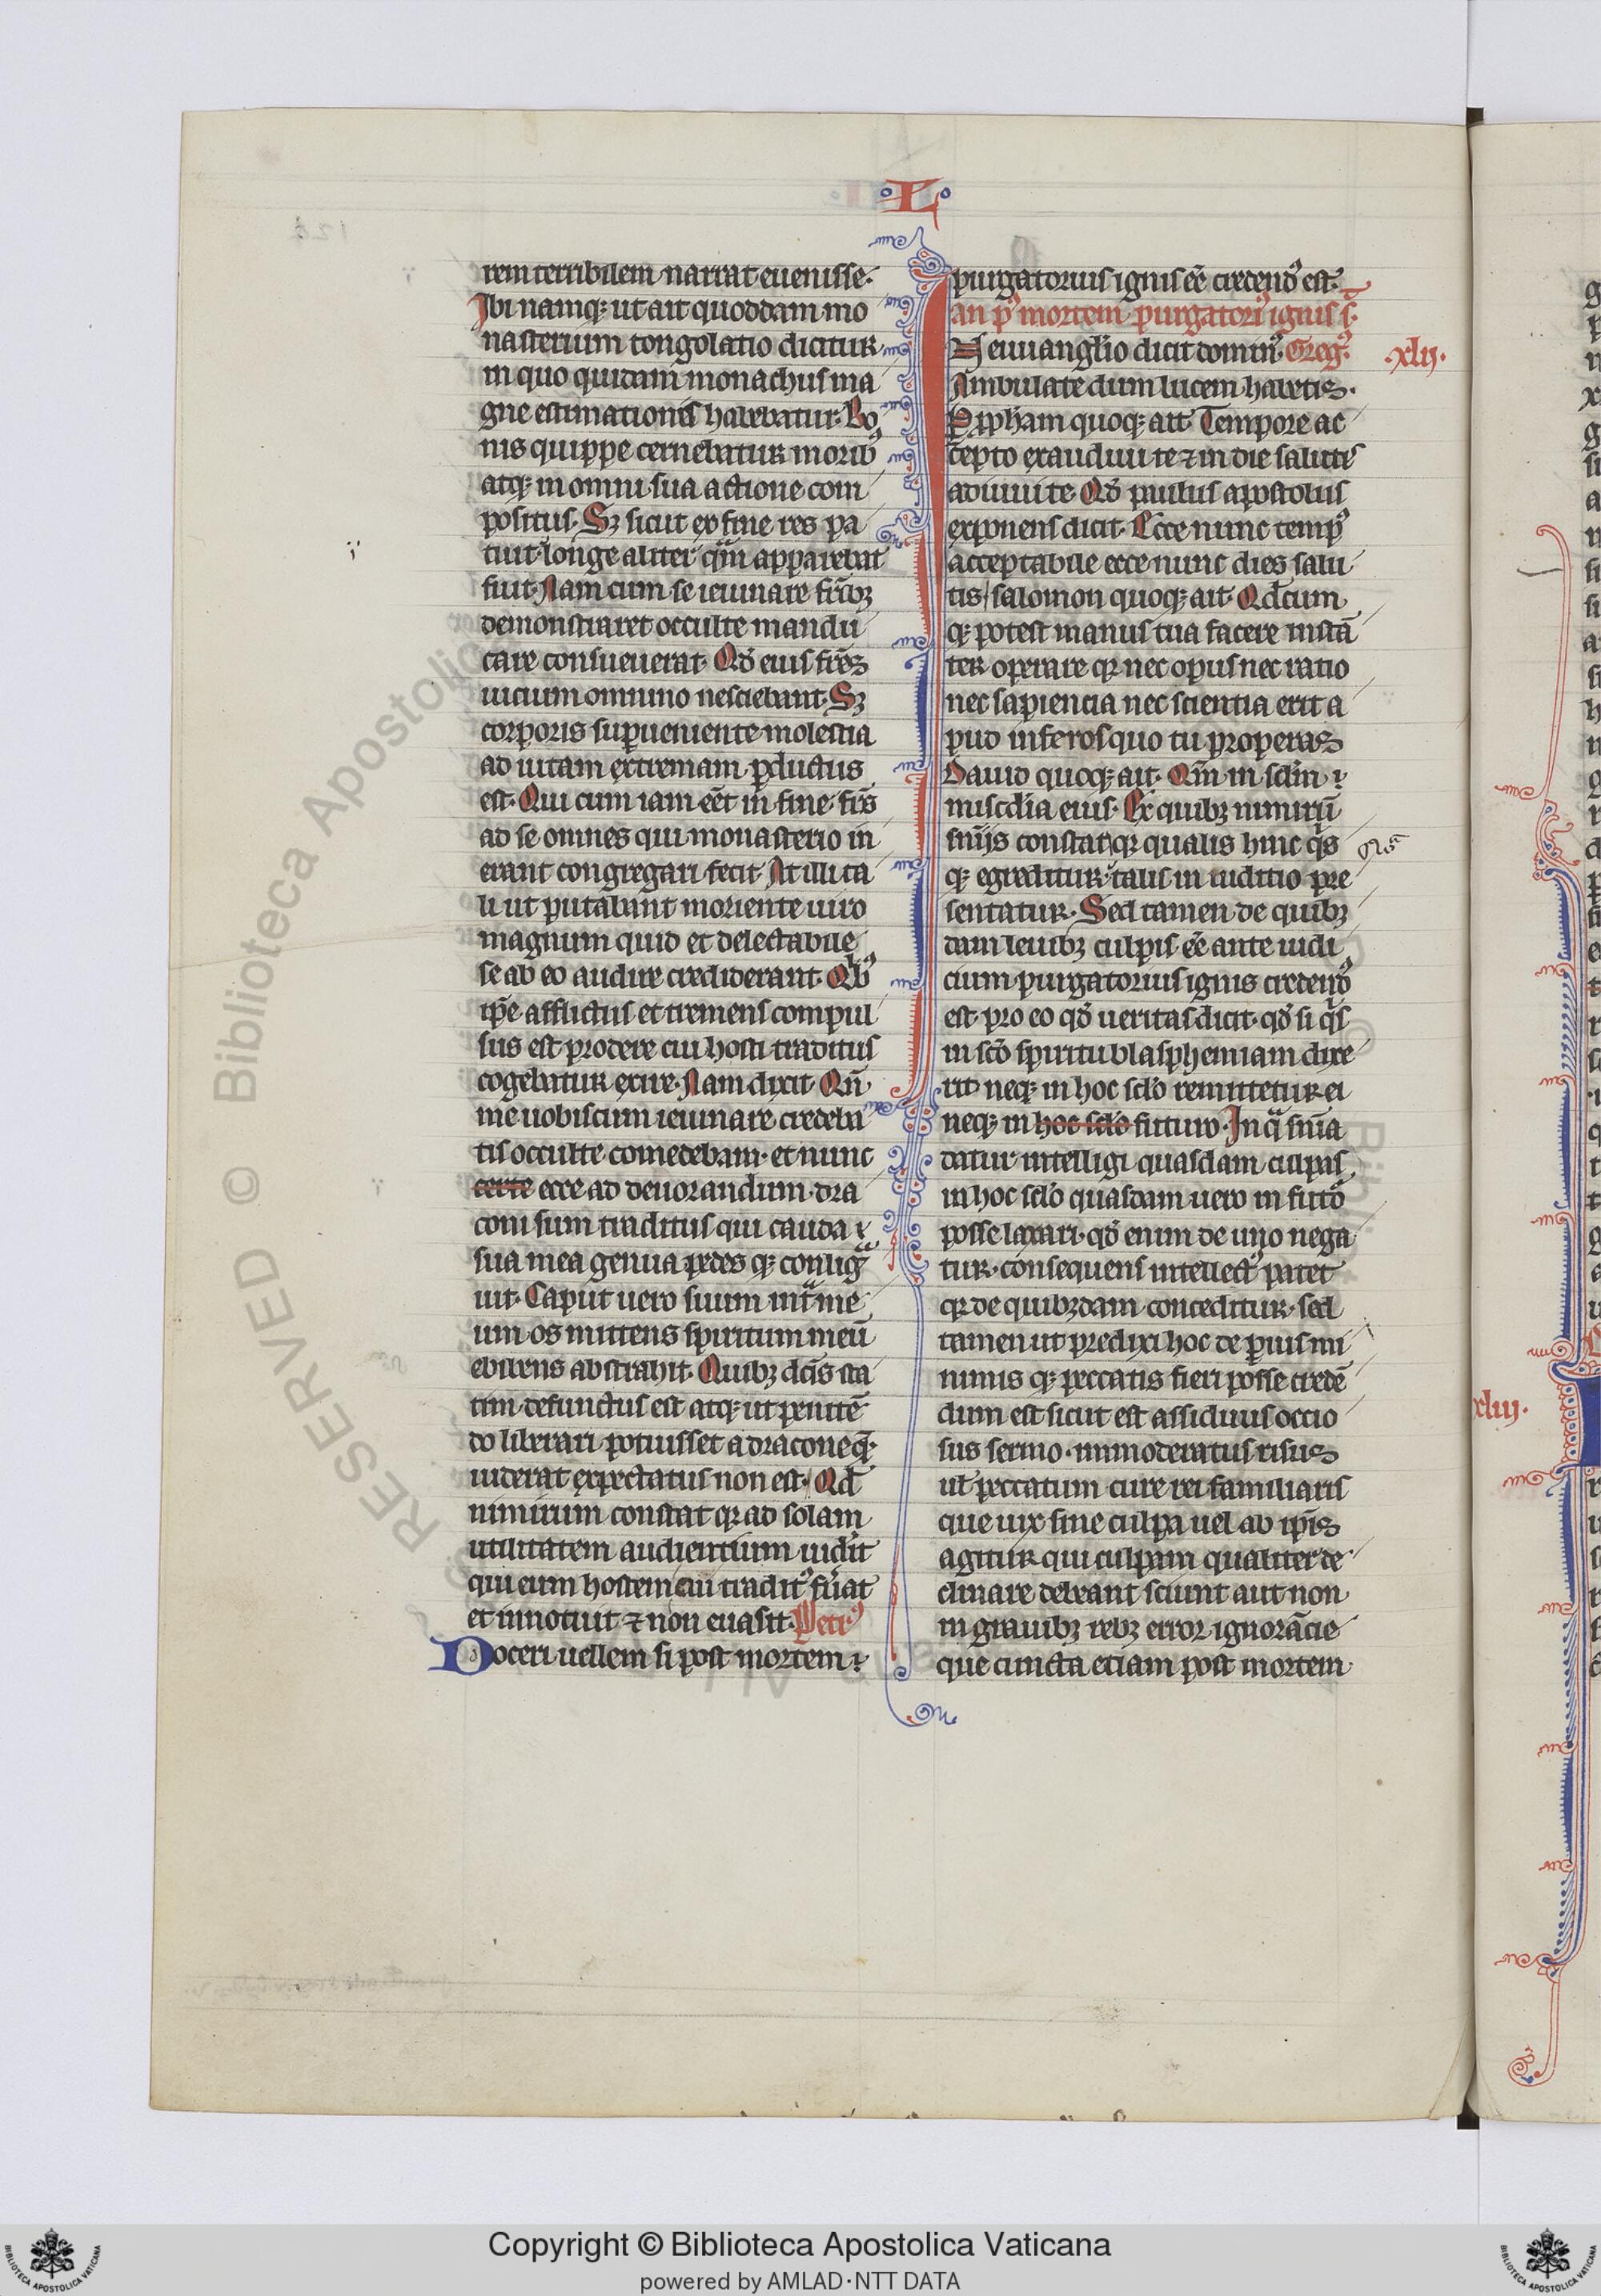 L
rem terribilem narrat euenisse.
Ibi namq; ut ait quoddam mo
nasterium tongolatio dicitur.
in quo quidam monachus ma
gne estimationis habebatur. Bo
nis quippe cernebatur morib⁹
atq; in omni sua actione com
positus. Sꝫ sicut ex fine res pa
tuit longe aliter qͣm apparebat
fuit. Nam cum se ieiunare fr̄ibꝫ
demonstraret occulte mandu
care consueuerat. Qd̄ eius fr̄es
uicium omnino nesciebant. Sꝫ
corporis suꝑueniente molestia
ad uitam extremam ꝑductus
est. Qui cum iam eēt in fine fr̄s
ad se omnes qui monasterio in
erant congregari fecit. At illi ta
li ut putabant moriente uiro
magnum quid et delectabile
se ab eo audire crediderant. Qib⁹
ip̄e afflictus et tremens compul
sus est prodere cui hosti traditus
cogebatur exire. Nam dixit. Qn̄
me uobiscum ieiunare credeba
tis occulte comedebam. et nunc
certe ecce ad deuorandum dra
coni sum traditus qui cauda
sua mea genua pedes q; conligͣ
uit. Caput uero suum intͣ me
um os mittens spiritum meū
ebibens abstrahit. Quibꝫ dc̄is sta
tim defunctus est atq; ut penitē
do liberari potuisset a dracone q̄
uiderat expectatus non est. Qd̄
nimirum constat qꝛ ad solam
utilitatem audientium uidit
qui eum hostem cui tradit⁹ fu̓at
et innotuit ⁊ non euasit. Petr⁹
Doceri uellem si post mortem
purgatorius ignis eē credend⁹ est.
an p⁹ mortem purgatori⁹ ignis s̄t.
.xlij.
In euuangl̓io dicit domin⁹. Greg⁹.
Ambulate dum lucem habetis.
Ꝑ ꝓpham quoq; ait. Tempore ac
cepto exaudiui te ⁊ in die salutis
adiuui te. Qd̄ paulus apostolus
exponens dicit. Ecce nunc temp⁹
acceptabile ecce nunc dies salu
tis / salomon quoq; ait. Qd̄cum
q; potest manus tua facere instā
ter operare qꝛ nec opus nec ratio
nec sapiencia nec scientia erit a
pud inferos quo tu properas
Dauid quoq; ait. Qm̄ in scl̄m
mis̄cdia eius. Ex quibꝫ nimirū
sn̄ijs constat qꝛ qualis hinc qͥs
q; egreditur talis in iuditio pre
sentatur. Sed tamen de quibꝫ
dam leuibꝫ culpis eē ante iudi
cium purgatorius ignis credend⁹
est. pro eo qd̄ ueritas dicit. qd̄ si qͥs
in sc̄o spiritu blasphemiam dixe
rit. neq; in hoc scl̓o remittetur ei
neq; in hoc scl̓o futuro. In qͣ sn̄ia
datur intelligi quasdam culpas
in hoc scl̓o quasdam uero in futō
posse laxari. qd̄ enim de uno nega
tur. consequens intellect⁹ patet
qꝛ de quibꝫdam conceditur. sed
tamen ut predixi hoc de ꝑuis mi
nimis q; peccatis fieri posse credē
dum est sicut est assiduus occio
sus sermo. immoderatus risus
ul̄ peccatum cure rei familiaris
que uix sine culpa uel ab ip̄is
agitur qui culpam qualiter de
clinare debeant sciunt aut non
in grauibꝫ rebꝫ error ignorācie
que cuncta etiam post mortem
xliij.
RESERVED © Biblioteca Apostolica
Copyright © Biblioteca Apostolica Vaticana
powered by AMLAD·NTT DATA
BIBLIOTECA APOSTOLICA VATICANA
BIBLIOTECA APOSTOLICA VATICANA